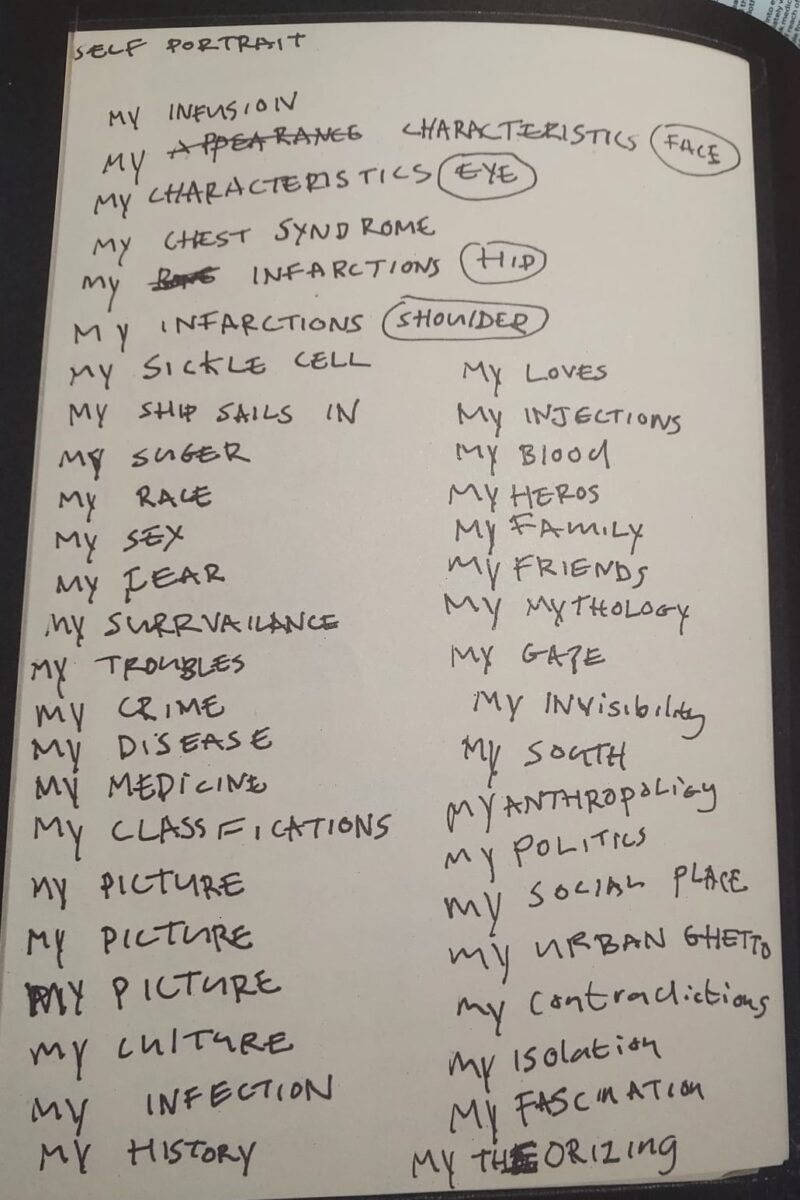 SELF PORTRAIT
MY INFUSION
MY APPEARANCE CHARACTERISTICS FACE
MY CHARACTERISTICS EYE
MY CHEST SYNDROME
MY INFARCTIONS HIP
MY INFARCTIONS SHOULDER
MY SICKLE CELL
MY SHIP SAILS IN
MY SUGER
MY RACE
MY SEX
MY FEAR
MY SURRVAILANCE
MY TROUBLES
MY CRIME
MY DISEASE
MY MEDICINE
MY CLASSIFICATIONS
MY PICTURE
MY PICTURE
MY PICTURE
MY CULTURE
MY INFECTION
MY HISTORY
MY LOVES
MY INJECTIONS
MY BLOOd
MY HEROS
MY FAMILY
MY FRIENDS
MY MYTHOLOGY
MY GAZE
MY INVisibility
MY SOUTH
MY ANTHROPOLIGY
MY POLITICS
MY SOCIAL PLACE
MY URBAN GHETTO
MY Contradictions
MY ISOlation
MY FASCINATION
MY THEORIZING